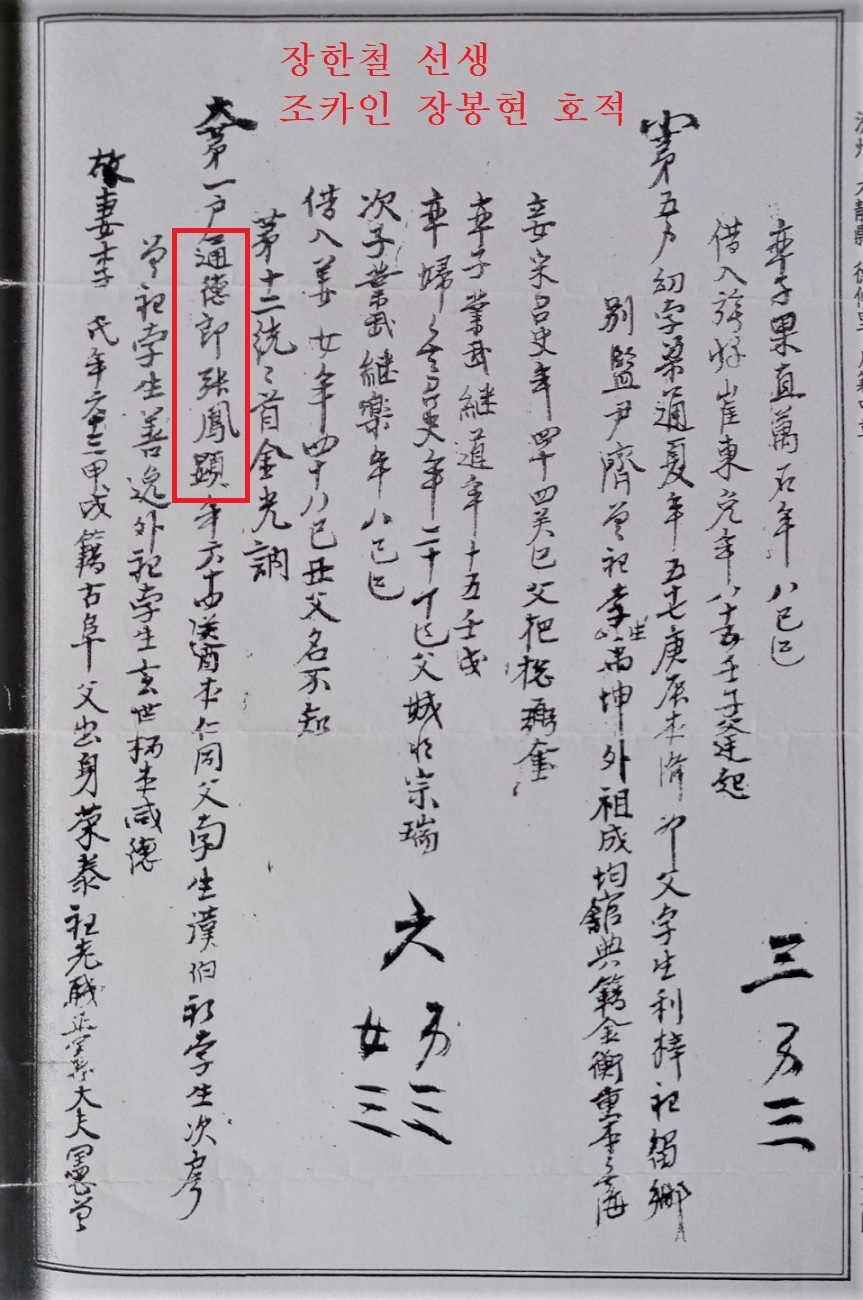 장한철 선생
조카인 장봉현 호적
率子果直萬石年八己巳
借入 崔東 年八十 壬子父廷起
小 第五戶幼學梁通夏年五十七庚辰本濟州父學生利梓祖 鄕
別監尹濟曾祖學生尚坤外祖成均館典籍金衡重本 海
妾宋召史年四十四癸巳父把摠
率子業武繼道年十五壬戌
率婦 召史年二十丁巳父 將宗瑞
次子業武繼樂年八己巳
借入姜女年四十八己丑父名不知
三 男三
六 男三
女三
第十二統統首金光訥
大 第一戶通德郎張鳳顯年六十 癸酉本仁同父學生漢伯祖學生次房
曾祖學生善逸外祖學生玄世柄本咸德
故妻李氏年六十三甲戌籍古阜父出身榮泰祖老職正憲大夫 曾